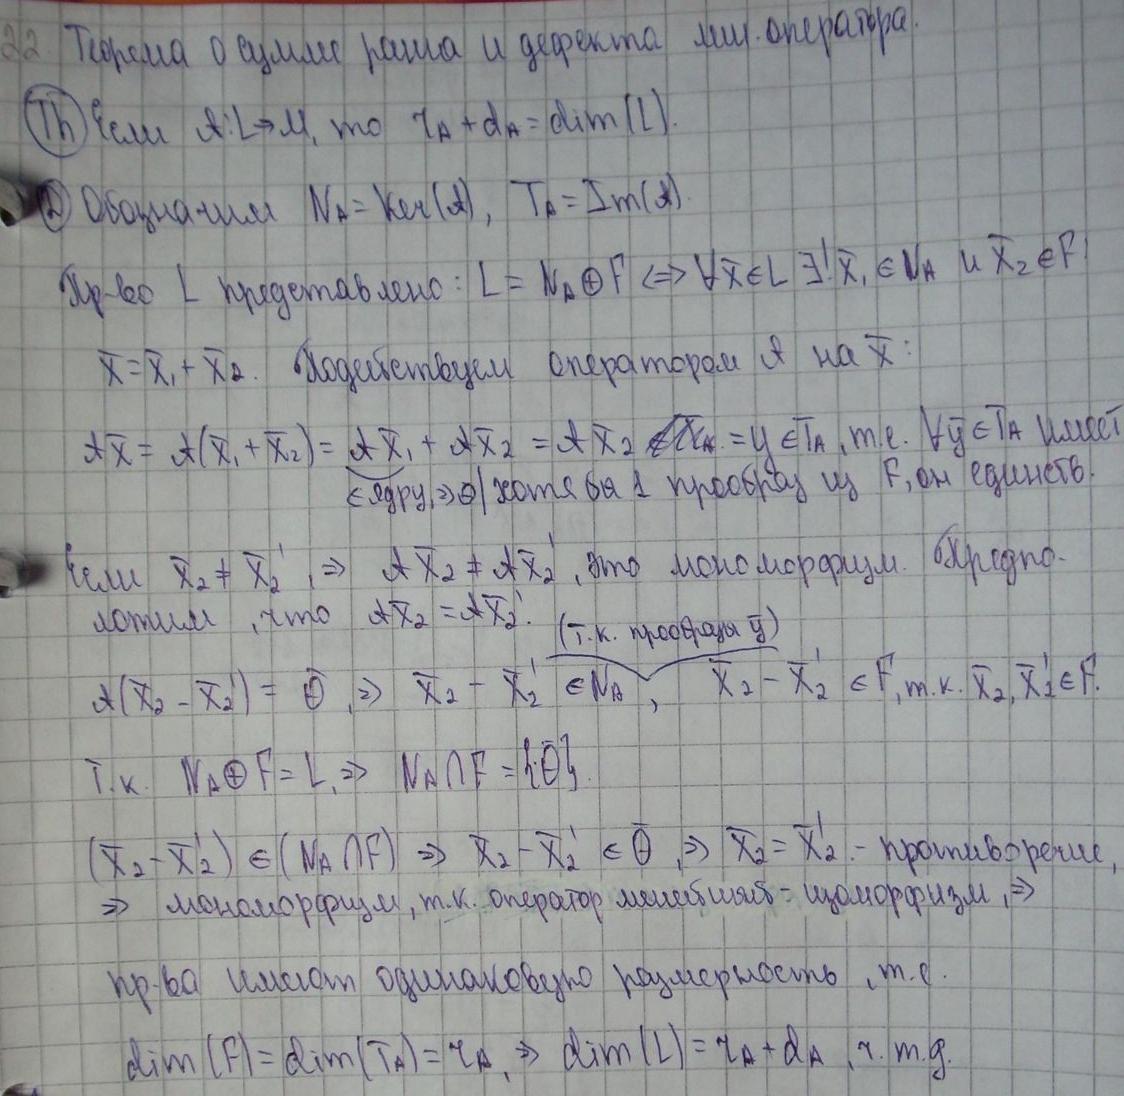 22. Теорема о сумме ранга и дефекта лин. оператора.
Th Если A: L→M, то r_A + d_A = dim(L).
Обозначим N_A = Ker(A), T_A = Im(A).
Пр-во L представлено: L = N_A ⊕ F ⇔ ∀x̄ ∈ L ∃! x̄₁ ∈ N_A и x̄₂ ∈ F!
x̄ = x̄₁ + x̄₂. Подействуем оператором A на x̄:
Ax̄ = A(x̄₁ + x̄₂) = Ax̄₁ + Ax̄₂ = Ax̄₂ = y ∈ T_A, т.е. ∀ȳ ∈ T_A имеет
∈ ядру, ⇒ θ | хотя бы 1 прообраз из F, он единств.
Если x̄₂ ≠ x̄₂', ⇒ Ax̄₂ ≠ Ax̄₂', это мономорфизм. Предпо-
ложим, что Ax̄₂ = Ax̄₂'.
(т.к. прообразы ȳ)
A(x̄₂ - x̄₂') = θ̄, ⇒ x̄₂ - x̄₂' ∈ N_A, x̄₂ - x̄₂' ∈ F, т.к. x̄₂, x̄₂' ∈ F.
Т.к. N_A ⊕ F = L, ⇒ N_A ∩ F = {θ̄}.
(x̄₂ - x̄₂') ∈ (N_A ∩ F) ⇒ x̄₂ - x̄₂' ∈ θ̄, ⇒ x̄₂ = x̄₂' - противоречие,
⇒ мономорфизм, т.к. оператор - изоморфизм, ⇒
пр-ва имеют одинаковую размерность, т.е.
dim(F) = dim(T_A) = r_A, ⇒ dim(L) = r_A + d_A, ч.т.д.